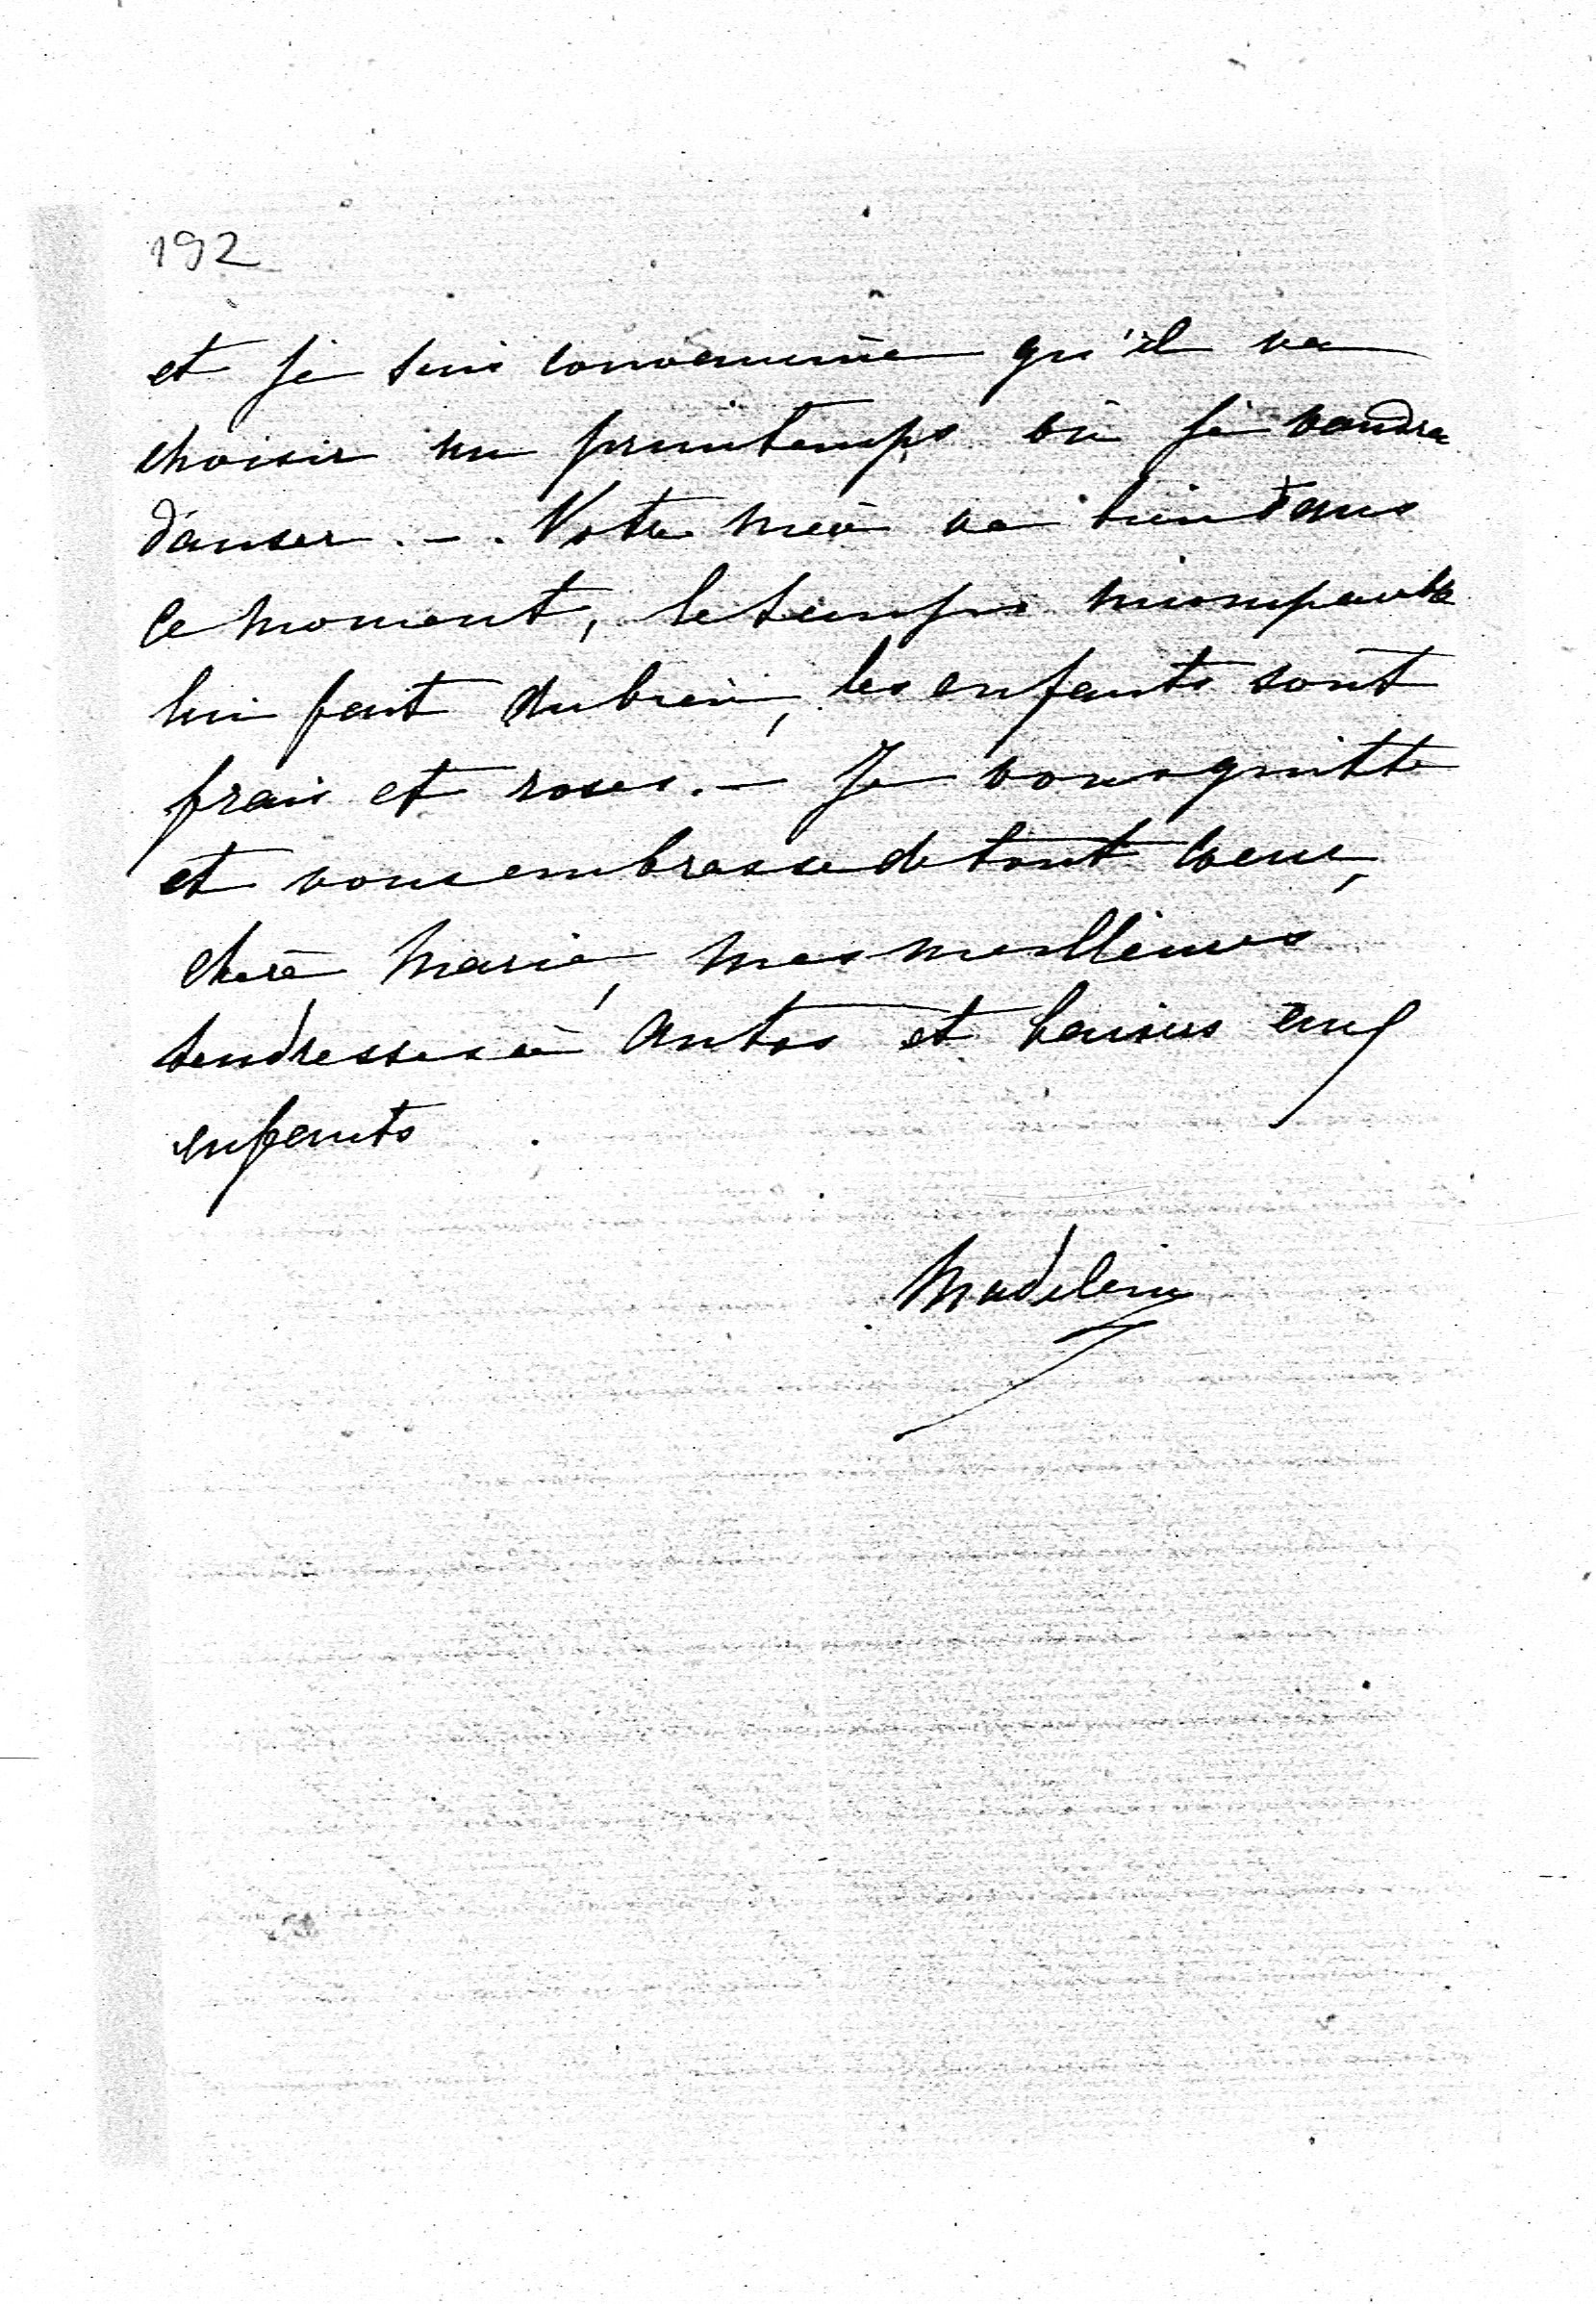 192
et je suis convaincue qu'il va
choisir un printemps où je voudrai
danser. – . Votre mère va bien dans
ce moment, le temps
lui fait du bien, les enfants sont
frais et roses. – Je vous quitte
et vous embrasse de tout cœur,
chère Marie, mes meilleures
tendresses à Antos et baisers aux
enfants .
Madeleine